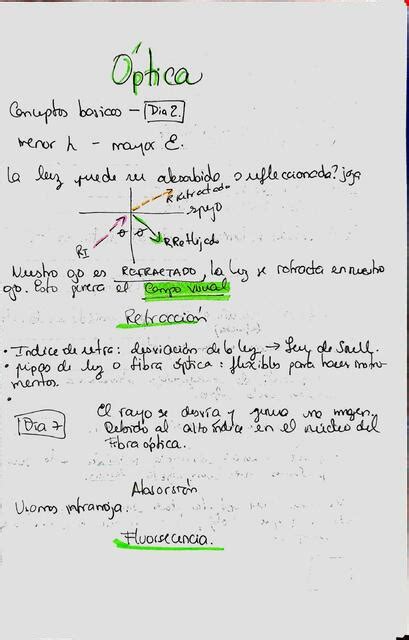 Óptica
Conceptos basicos - Dia 2.
menor λ - mayor E.
La luz puede ser absorbida o refleccionada? jaja
R Refractado
espejo
θ θ
RI
R Reflejado
Nuestro ojo es REFRACTADO, la luz se refracta en nuestro
ojo. Esto genera el campo visual
Refracción
• Indice de refra: desviación de la luz → Ley de Snell.
• pipas de luz o fibra óptica: flexibles para hacer instru-
mentos.
•
Dia 7
El rayo se desvía y genera una imagen,
Debido al alto índice en el núcleo del
Fibra óptica.
Absorsión
Usamos infrarroja.
Fluorsecencia.